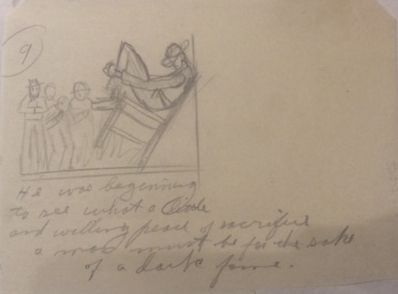 9
He was beginning
to see what a
and willing peace of sacrifice
a man must be for the sake
of a dark fame.